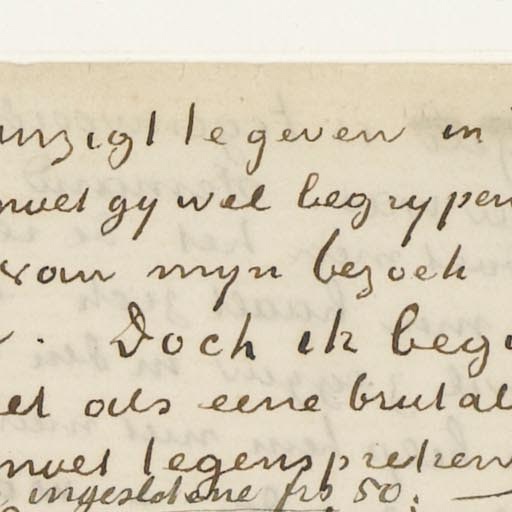 te geven in
moet gy wel begrypen
van myn bezoek
. Doch ik beg
et als eene brutal
moet tegenspreken
ingeslotene frs 50;